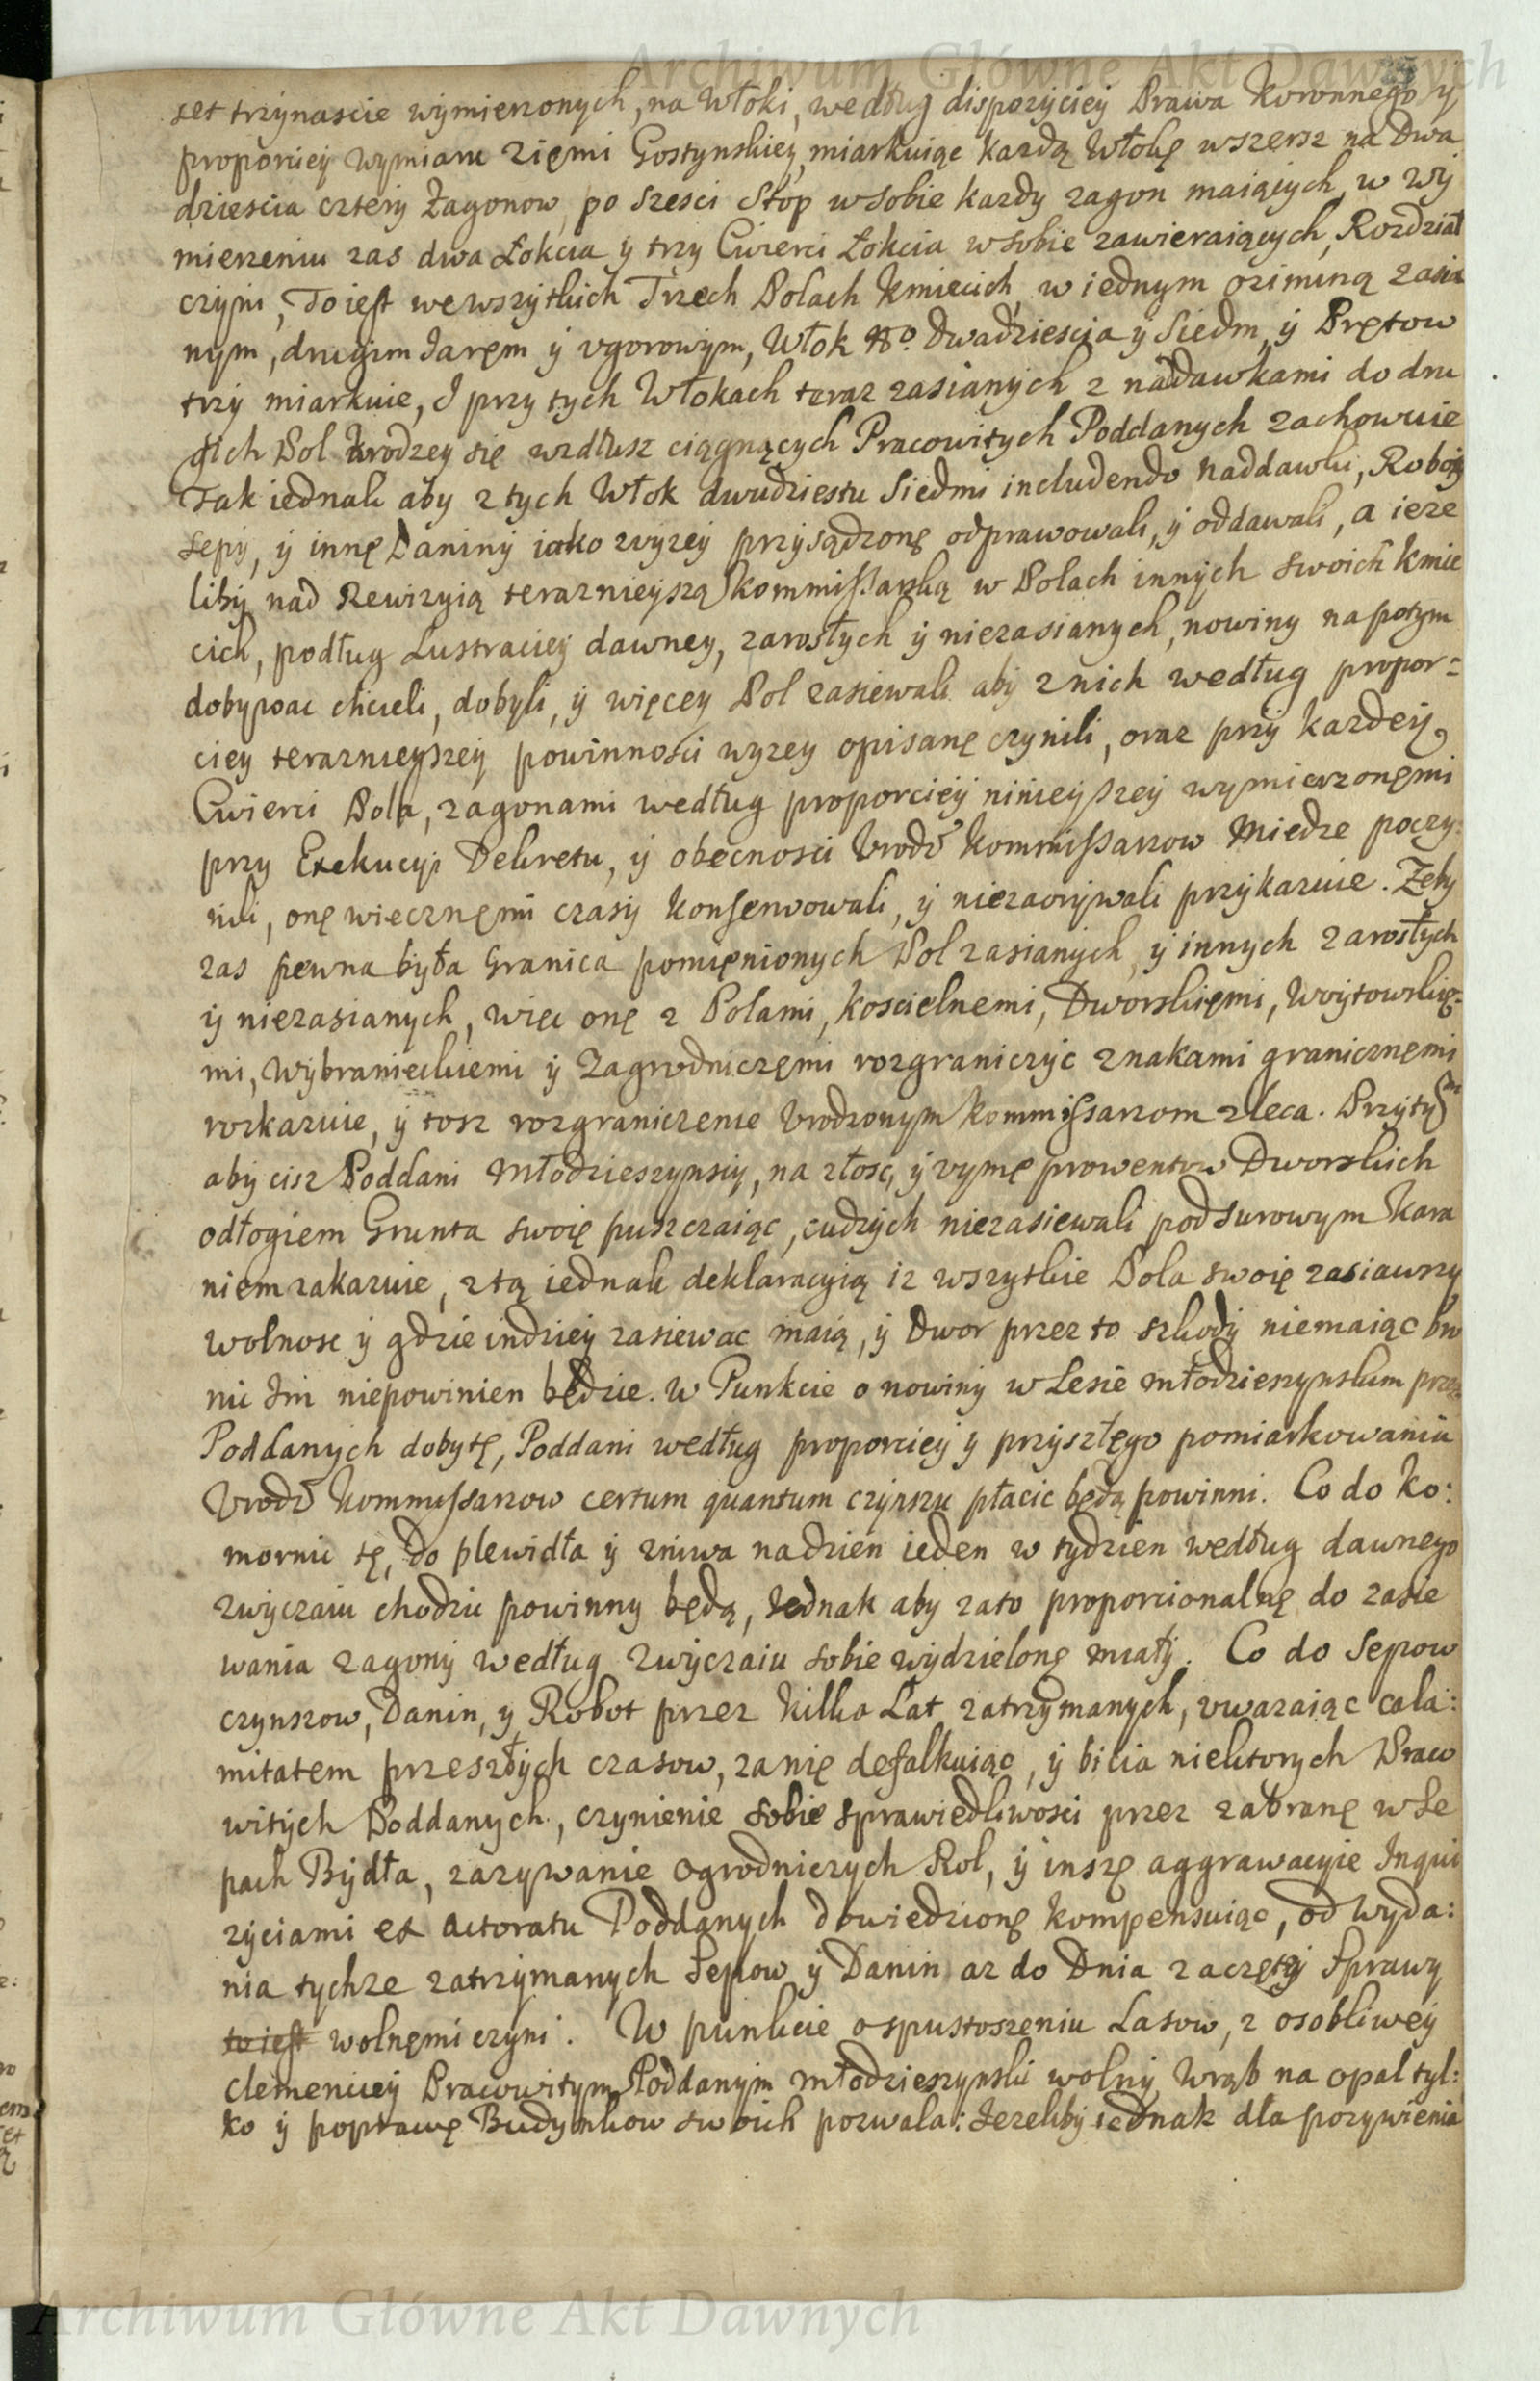 Archiwum Główne Akt Dawnych
set trzynascie wymierzonych, na Włoki, według dispozyciey Prawa Koronnego y
proporciey wymiaru Zięmi Gostynskiey, miarkuiąc każdą Włokę wszersz na Dwa
dziescia cztery Zagonow, po szesci Stop w sobie kazdy zagon maiących, w wy
mierzeniu zas dwa Łokcia y trzy Cwierci Łokcia w sobie zawieraiących, Rozdział
czyni, To iest we wszytkich Trzech Polach Kmiecich, w iednym oziminą zasia
nym, drugim Iaręm y vgorowym, Włok No. Dwadziescia y Siedm, y Prętow
trzy miarkuie, I przy tych Włokach teraz zasianych z naddawkami do dru
gich Pol krodzey się wzdłusz ciągnących Pracowitych Poddanych zachowuie
Tak iednak aby z tych Włok dwudziestu Siedmi includendo naddawki, Roboty
Sepy, y innę Daniny iako wyzey przysądzonę odprawowali, y oddawali, a ieze
liby nad Rewizyią teraznieyszą kommissarską w Polach innych swoich kmie
cich, podług Lustraciey dawney, zarosłych y niezasianych, nowiny napotym
dobywac chcieli, dobyli, y więcey Pol zasiewali aby z nich według propor=
ciey teraznieyszey powinności wyzey opisanę czynili, oraz przy kazdey
Cwierci Pola, zagonami według proporciey ninieyszey wymierzonęmi
przy Exekucyi Dekretu, y obecnosci Vrodz Kommissarzow Miedze poczy:
nili, onę wiecznęmi czasy konserwowali, y niezaorywali przykazuie. Zeby
zas pewna była Granica pomięnionych Pol zasianych, y innych zarosłych
y niezasianych, więc onę z Polami, Koscielnemi, Dworskięmi, Woytowskię=
mi, Wybranieckiemi y Zagrodniczęmi rozgraniczyc znakami granicznęmi
rozkazuie, y tosz rozgraniczenie Vrodzonym Kommissarzom zleca. Przytym
aby cisz Poddani Młodzieszynsiy, na złosc, y vymę prowentow Dworskich
odłogiem Grunta swoię puszczaiąc, cudzych niezasiewali pod surowym kara
niem zakazuie, z tą iednak deklaracyią iz wszytkie Pola swoię zasiawszy
wolnosc y gdzie indziey zasiewac maią, y Dwor przez to szkody niemaiąc bro
nic Im niepowinien będzie. W Punkcie o nowiny w Lesie Młodzieszynskim przez
Poddanych dobytę, Poddani według proporciey y przyszłego pomiarkowania
Vrodz Kommissarzow certum quantum czynszu płacic będą powinni. Co do Ko:
mornic tę, do plewidła y zniwa na dzien ieden w tydzien według dawnego
zwyczaiu chodzic powinny będą, Iednak aby zato proporcionalnę do zasie
wania zagony według zwyczaiu sobie wydzielonę miały. Co do Sepow
czynszow, Danin, y Robot przez kilka Lat zatrzymanych, vwazaiąc cala:
mitatem przeszłych czasow, zanię defalkuiąc, y bicia niektorych Praco
witych Poddanych, czynienie sobie sprawiedliwosci przez zabranę w Se
pach Bydła, zazywanie ogrodniczych Rol, y inszę aggrawacyie Inqui
zyciami ex actoratu Poddanych dowiedzionę kompensuiąc, od wyda:
nia tychze zatrzymanych Sepow y Danin az do Dnia zaczętey Sprawy
to iest wolnęmi czyni. W punkcie o spustoszeniu Lasow, z osobliwey
clemenciey Pracowitym Poddanym Młodzieszynski wolny Wrąb na opal tyl:
ko y poprawę Budynkow swoich pozwala: Iezeliby iednak dla pozywienia
Archiwum Główne Akt Dawnych